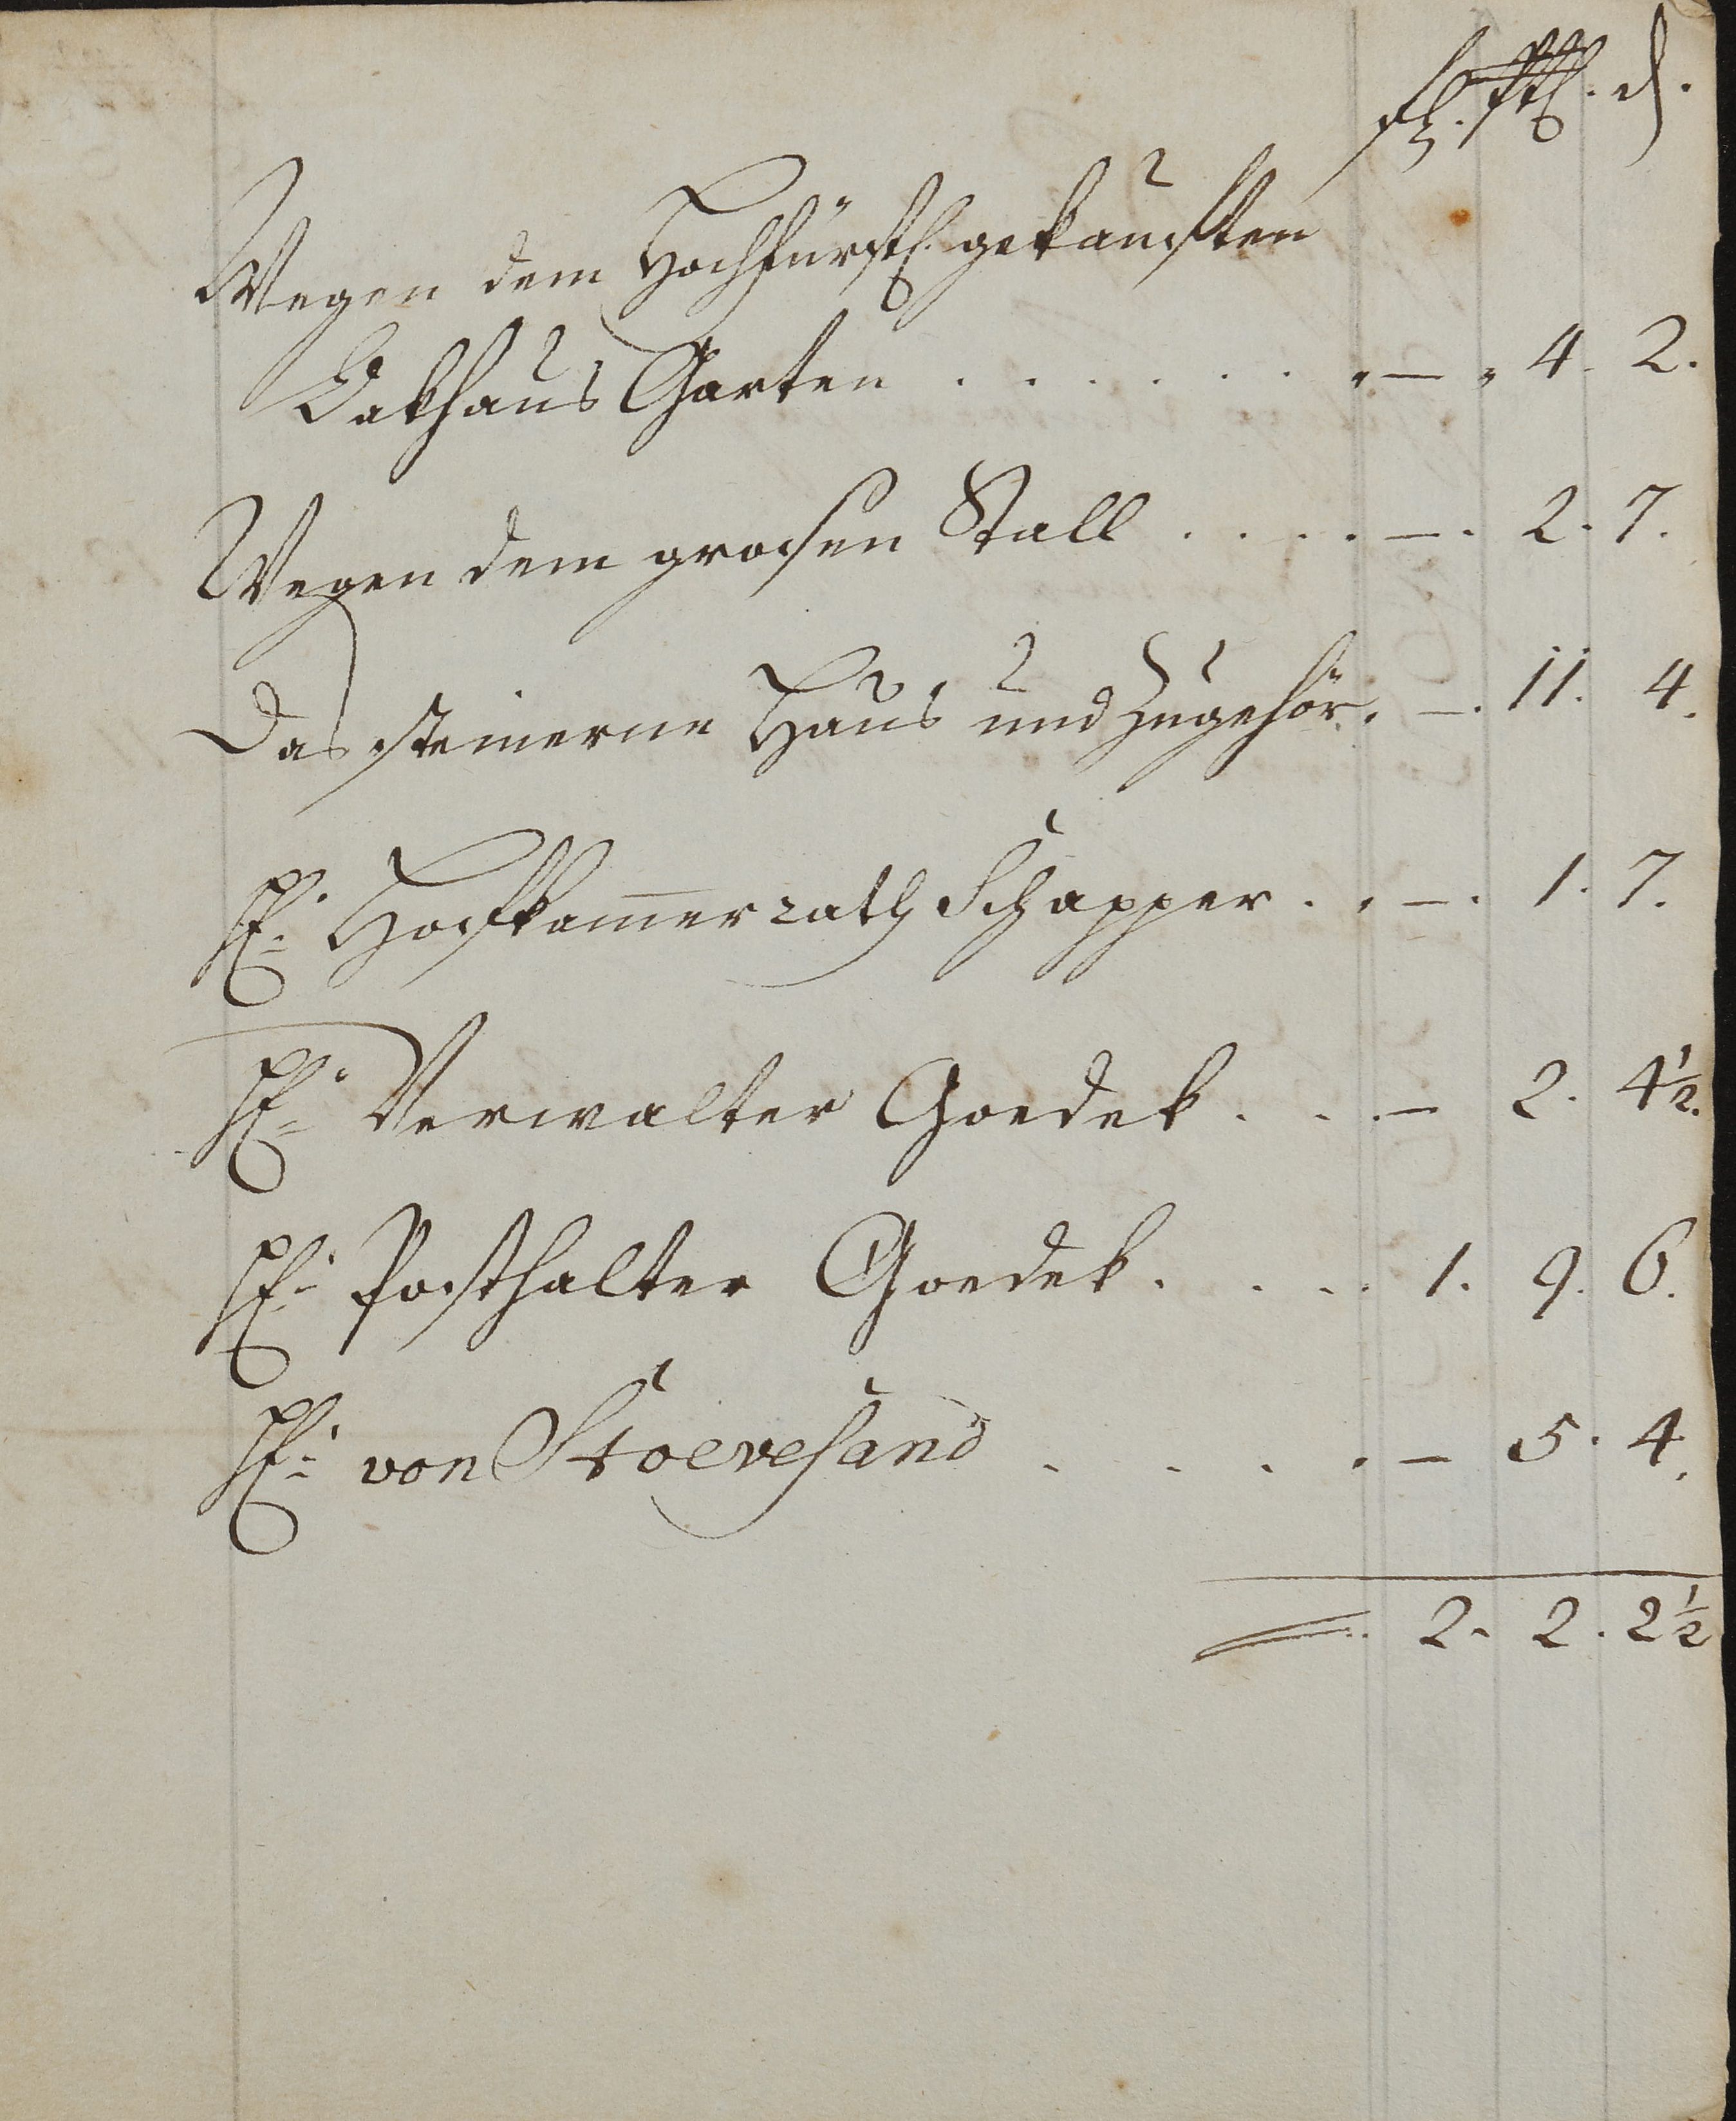 Wegen dem Hochfürstl. gekauften
Bakhaus Garten . . . . . . . — „ 4. 2.
Wegen dem grosen Stall . . . . — . 2. 7.
Das steinerne Haus und Zugehör. — . 11. 4.
H. Hofkam̅errath Schapper . . — . 1. 7.
H. Verwalter Goedek . . . — 2. 4½.
H. Posthalter Goedek . . . . 1. 9. 6.
H. von Stoevesand . . . . — 5. 4.
2. 2. 2½